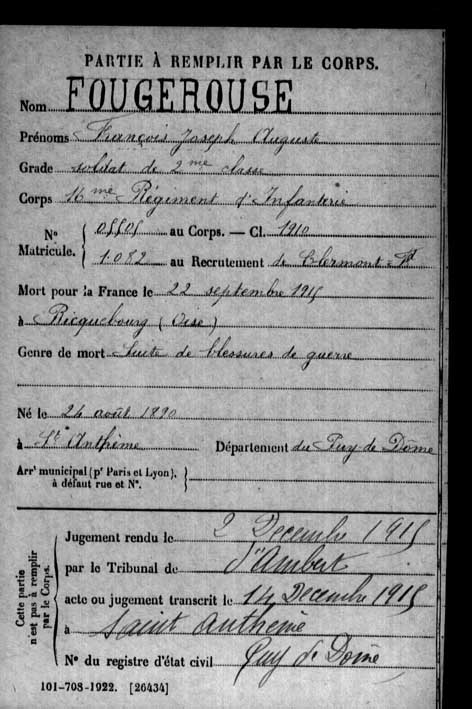 PARTIE À REMPLIR PAR LE CORPS.
Nom FOUGEROUSE
Prénoms François Joseph Auguste
Grade soldat de 2me classe
Corps 16me Régiment d'Infanterie
No Matricule. { 05505 au Corps. — Cl. 1910
1.082 au Recrutement de Clermont-Fd
Mort pour la France le 22 septembre 1915
à Ricquebourg (Oise)
Genre de mort Suite de blessures de guerre
Né le 24 août 1890
à St Anthème Département du Puy-de-Dôme
Arrt municipal (pr Paris et Lyon), à défaut rue et No. }
Cette partie n'est pas à remplir par le Corps.
Jugement rendu le 2 Decembre 1915
par le Tribunal de d'Ambert
acte ou jugement transcrit le 14 Decembre 1915
à Saint Anthème
No du registre d'état civil Puy de Dome
101-708-1922. [26434]